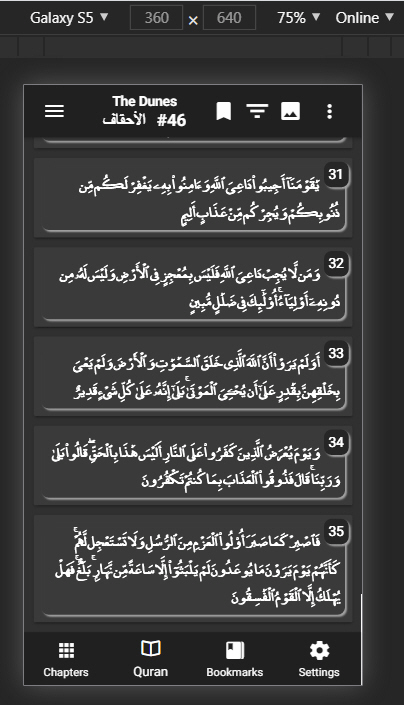 Galaxy S5 ▼ 360 × 640 75% ▼ Online ▼
The Dunes
الأحقاف #46
31
يَٰقَوْمَنَآ أَجِيبُوا۟ دَاعِىَ ٱللَّهِ وَءَامِنُوا۟ بِهِۦ يَغْفِرْ لَكُم مِّن
ذُنُوبِكُمْ وَيُجِرْكُم مِّنْ عَذَابٍ أَلِيمٍ
32
وَمَن لَّا يُجِبْ دَاعِىَ ٱللَّهِ فَلَيْسَ بِمُعْجِزٍ فِى ٱلْأَرْضِ وَلَيْسَ لَهُۥ مِن
دُونِهِۦٓ أَوْلِيَآءُ ۚ أُو۟لَٰٓئِكَ فِى ضَلَٰلٍ مُّبِينٍ
33
أَوَلَمْ يَرَوْا۟ أَنَّ ٱللَّهَ ٱلَّذِى خَلَقَ ٱلسَّمَٰوَٰتِ وَٱلْأَرْضَ وَلَمْ يَعْىَ
بِخَلْقِهِنَّ بِقَٰدِرٍ عَلَىٰٓ أَن يُحْۦِىَ ٱلْمَوْتَىٰ ۚ بَلَىٰٓ إِنَّهُۥ عَلَىٰ كُلِّ شَىْءٍ قَدِيرٌ
34
وَيَوْمَ يُعْرَضُ ٱلَّذِينَ كَفَرُوا۟ عَلَى ٱلنَّارِ أَلَيْسَ هَٰذَا بِٱلْحَقِّ ۖ قَالُوا۟ بَلَىٰ
وَرَبِّنَا ۚ قَالَ فَذُوقُوا۟ ٱلْعَذَابَ بِمَا كُنتُمْ تَكْفُرُونَ
35
فَٱصْبِرْ كَمَا صَبَرَ أُو۟لُوا۟ ٱلْعَزْمِ مِنَ ٱلرُّسُلِ وَلَا تَسْتَعْجِل لَّهُمْ ۚ
كَأَنَّهُمْ يَوْمَ يَرَوْنَ مَا يُوعَدُونَ لَمْ يَلْبَثُوٓا۟ إِلَّا سَاعَةً مِّن نَّهَارٍۭ ۚ بَلَٰغٌ ۚ فَهَلْ
يُهْلَكُ إِلَّا ٱلْقَوْمُ ٱلْفَٰسِقُونَ
Chapters Quran Bookmarks Settings